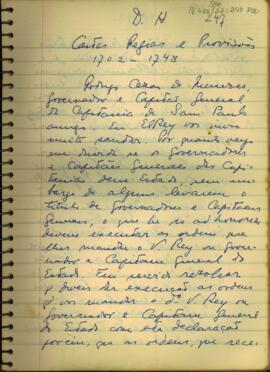 D. H
247
Cartas Regias e Provisões
1702 - 1748
Rodrigo Cezar de Menezes,
Governador e Capitão General
da Capitania de Sam Paulo
amigo. Eu ElRey vos invio
muito saudar. Por quanto veyo
em duvida se os Governadores
e Capitães Generaes das Capi-
tanias desse Estado, sem em-
bargo de alguns levarem o
titulo de Governadores e Capitaens
Generaes, o que he só ad honorem
devem executar as ordens que
lhes mandar o V. Rey ou Gover-
nador e Capitam general do
Estado. Fui servido resolver
q deveis dar execução as ordens
q vos mandar o dº V. Rey ou
Governador e Capitam General
do Estado com esta declaração
porém, que as ordens, que rece-